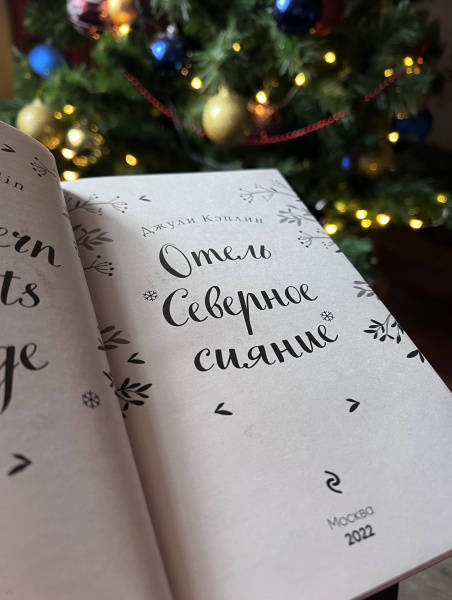 Джули Кэплин
Отель
Северное
сияние
Москва
2022